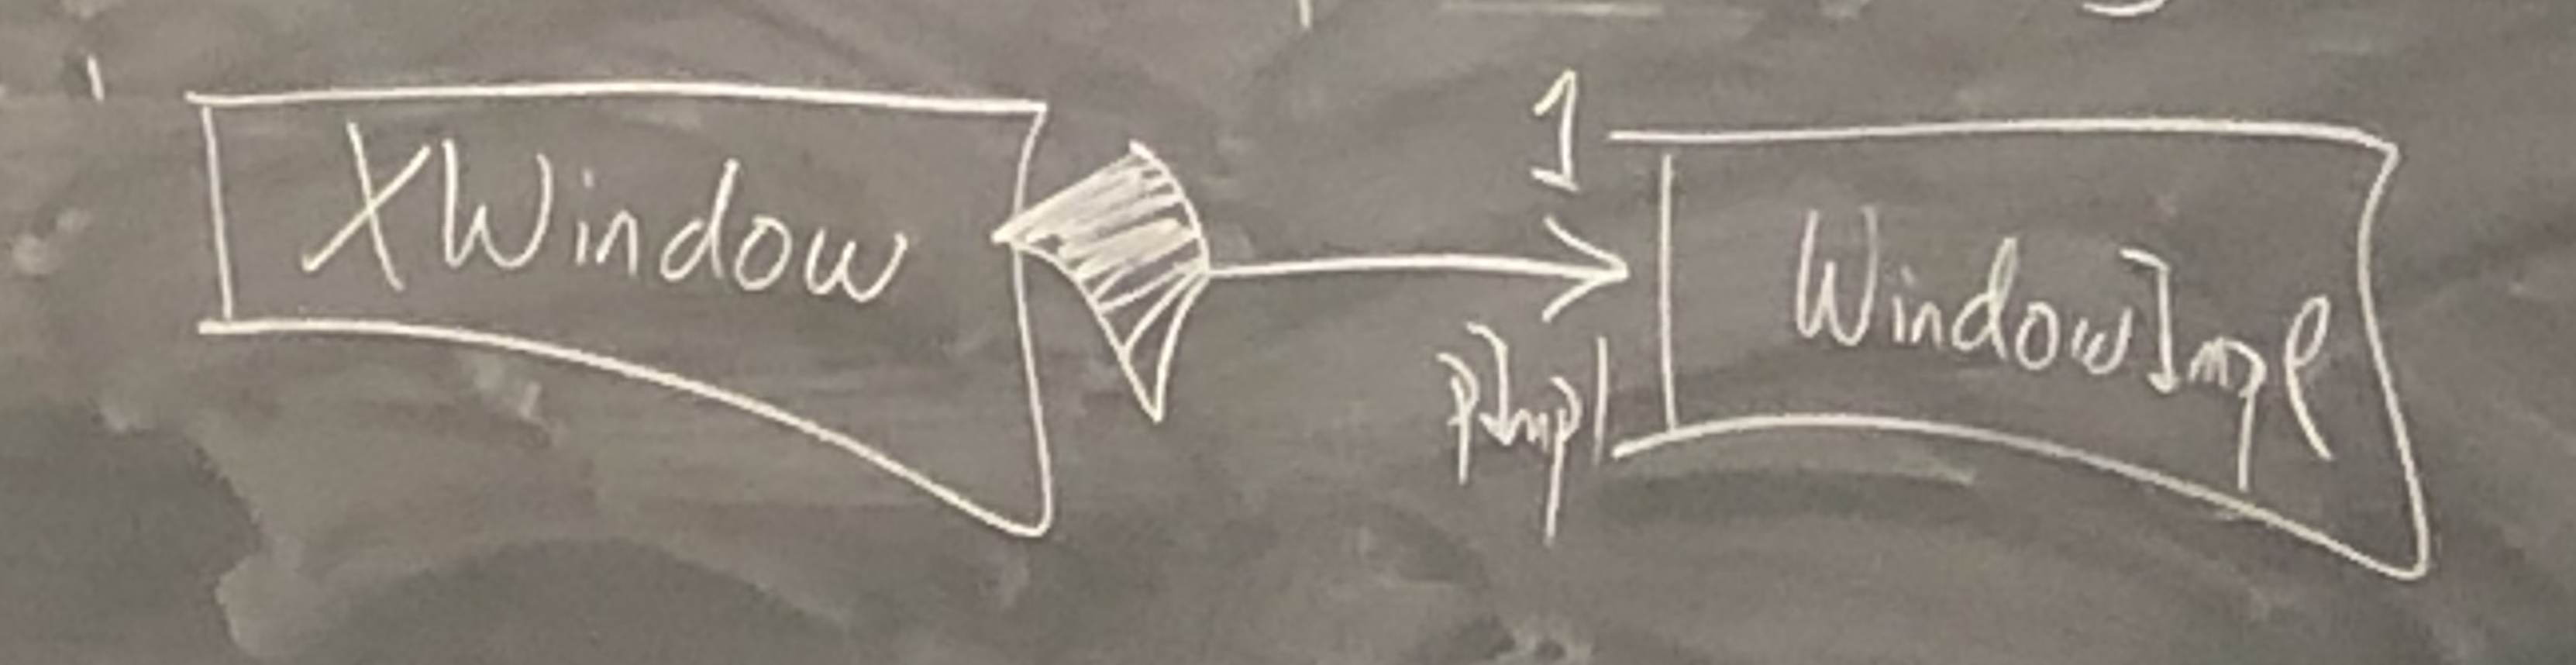 XWindow
1
pImpl
WindowImpl